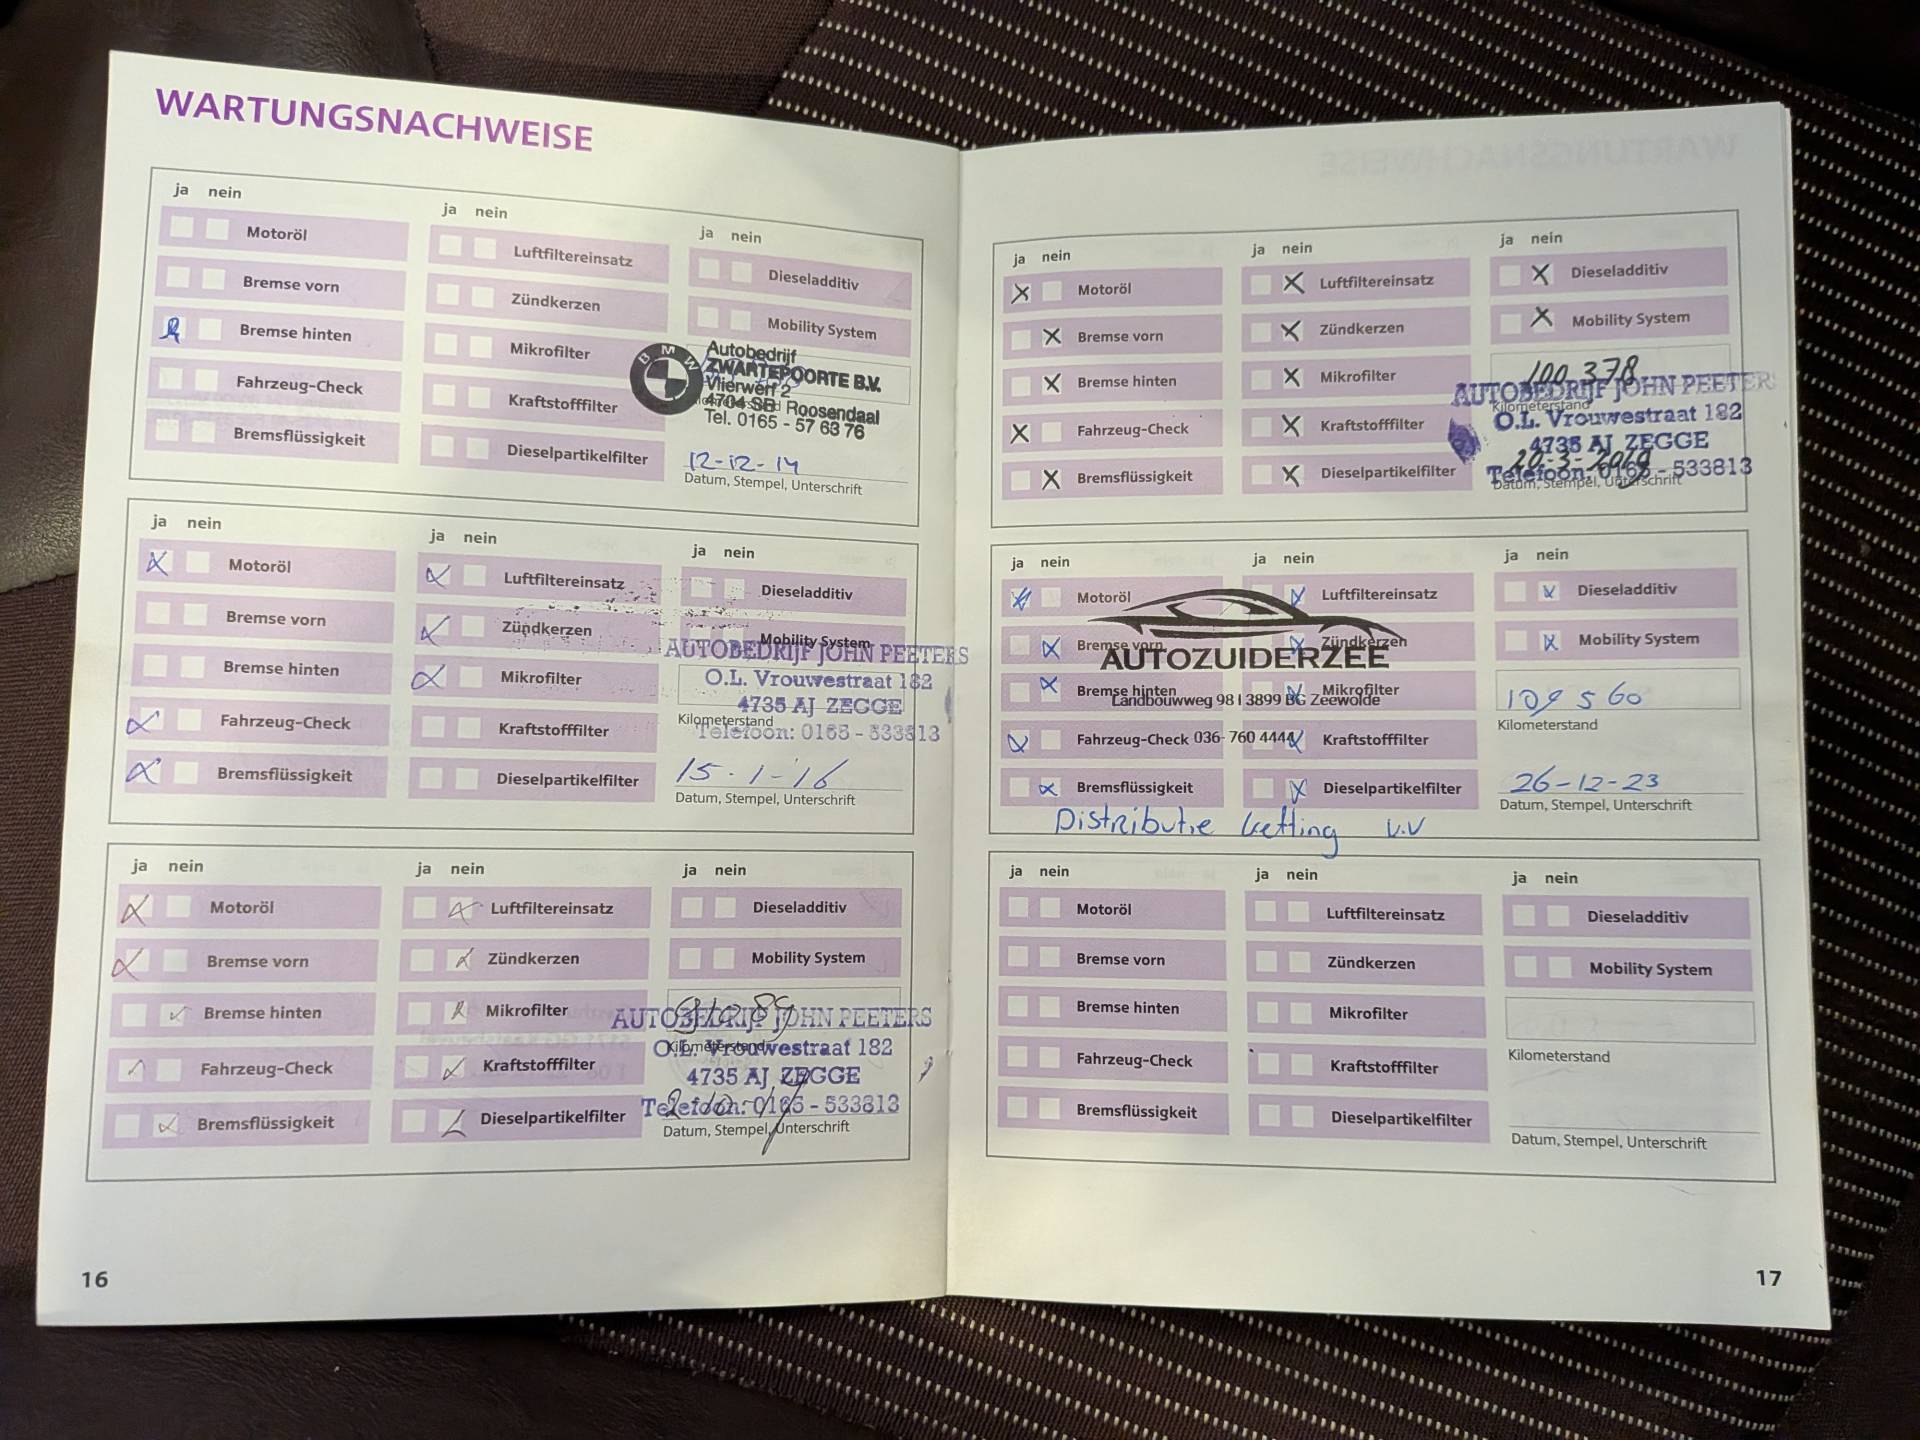 WARTUNGSNACHWEISE
ja nein
Motoröl
Bremse vorn
Bremse hinten
Fahrzeug-Check
Bremsflüssigkeit
ja nein
Luftfiltereinsatz
Zündkerzen
Mikrofilter
Kraftstofffilter
Dieselpartikelfilter
ja nein
Dieseladditiv
Mobility System
BMW
Autobedrijf
ZWARTEPOORTE B.V.
Vlierwerf 2
4704 SB Roosendaal
Tel. 0165 - 57 63 76
12-12-14
Datum, Stempel, Unterschrift
ja nein
Motoröl
Bremse vorn
Bremse hinten
Fahrzeug-Check
Bremsflüssigkeit
ja nein
Luftfiltereinsatz
Zündkerzen
Mikrofilter
Kraftstofffilter
Dieselpartikelfilter
ja nein
Dieseladditiv
Mobility System
AUTOBEDRIJF JOHN PEETERS
O.L. Vrouwestraat 182
4735 AJ ZEGGE
Kilometerstand
Telefoon: 0165 - 533813
15-1-'16
Datum, Stempel, Unterschrift
ja nein
Motoröl
Bremse vorn
Bremse hinten
Fahrzeug-Check
Bremsflüssigkeit
ja nein
Luftfiltereinsatz
Zündkerzen
Mikrofilter
Kraftstofffilter
Dieselpartikelfilter
ja nein
Dieseladditiv
Mobility System
AUTOBEDRIJF JOHN PEETERS
Kilometerstand
O.L. Vrouwestraat 182
4735 AJ ZEGGE
Telefoon: 0165 - 533813
Datum, Stempel, Unterschrift
16
ja nein
Motoröl
Bremse vorn
Bremse hinten
Fahrzeug-Check
Bremsflüssigkeit
ja nein
Luftfiltereinsatz
Zündkerzen
Mikrofilter
Kraftstofffilter
Dieselpartikelfilter
ja nein
Dieseladditiv
Mobility System
100 378
AUTOBEDRIJF JOHN PEETERS
Kilometerstand
O.L. Vrouwestraat 182
4735 AJ ZEGGE
20-3-2019
Telefoon: 0165 - 533813
Datum, Stempel, Unterschrift
ja nein
Motoröl
Bremse vorn
Bremse hinten
Fahrzeug-Check
Bremsflüssigkeit
ja nein
Luftfiltereinsatz
Zündkerzen
Mikrofilter
Kraftstofffilter
Dieselpartikelfilter
AUTOZUIDERZEE
Landbouwweg 98 | 3899 BG Zeewolde
036- 760 4444
ja nein
Dieseladditiv
Mobility System
109 560
Kilometerstand
26-12-23
Datum, Stempel, Unterschrift
Distributie ketting v.v
ja nein
Motoröl
Bremse vorn
Bremse hinten
Fahrzeug-Check
Bremsflüssigkeit
ja nein
Luftfiltereinsatz
Zündkerzen
Mikrofilter
Kraftstofffilter
Dieselpartikelfilter
ja nein
Dieseladditiv
Mobility System
Kilometerstand
Datum, Stempel, Unterschrift
17